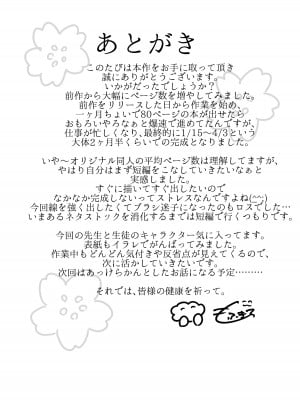 あとがき
このたびは本作をお手に取って頂き
誠にありがとうございます。
いかがだったでしょうか？
前作から大幅にページ数を増やしてみました。
前作をリリースした日から作業を始め、
一ヶ月ちょいで80ページの本が出せたら
おもろいやろなぁと爆速で進めてたんですが、
仕事が忙しくなり、最終的に1/15～4/3という
大体2ヶ月半くらいでの完成となりました。
いや～オリジナル同人の平均ページ数は理解してますが、
やはり自分はまず短編をこなしていきたいなぁと
実感しました。
すぐに描いてすぐ出したいので
なかなか完成しないってストレスなんですよね(^^;)
今回線を強く出したくてブラシ迷子になったのもロスでした…
いまあるネタストックを消化するまでは短編で行くつもりです。
今回の先生と生徒のキャラクター気に入ってます。
表紙もイラレでがんばってみました。
作業中もどんどん気付きや反省点が見えてくるので、
次に活かしていきたいです。
次回はあっけらかんとしたお話になる予定………
それでは、皆様の健康を祈って。